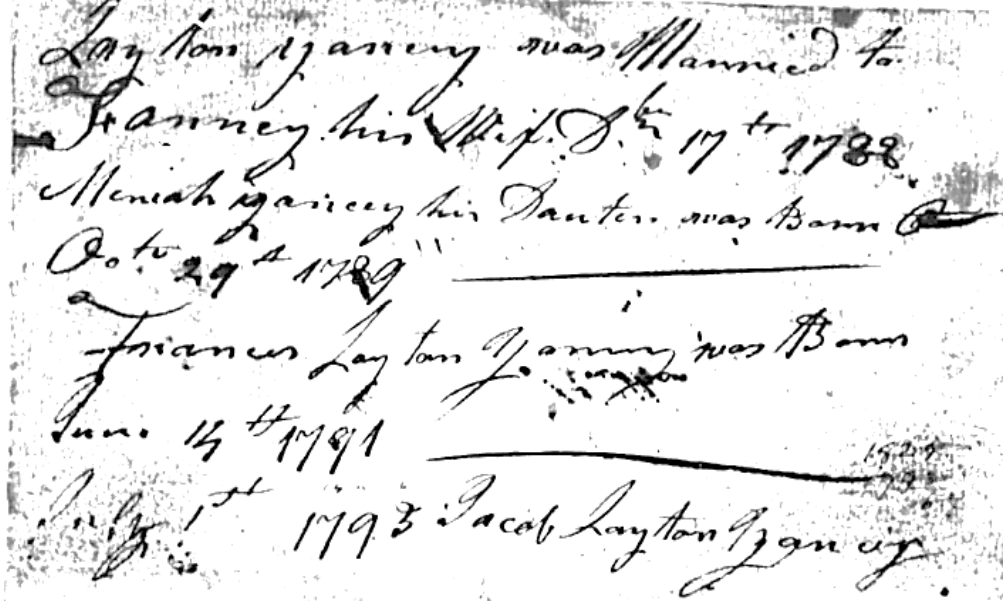 Layton yancey was Married to
Fanney his Wife Dbr 17th 1788
Meniah yancey his Dauter was Born
Octr 29th 1789
Frances Layton Yancey was Born
June 14th 1791
July 1st 1793 Jacob Layton Yancey